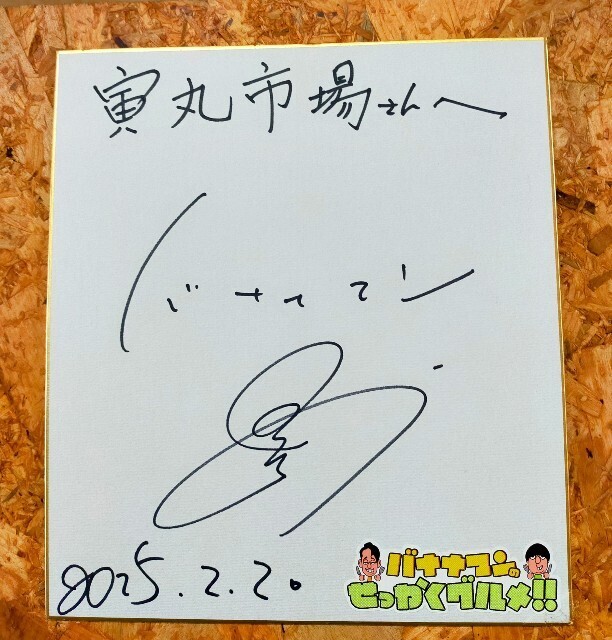 寅丸市場さんへ
バナナマン
2025.2.20
バナナマンの
せっかくグルメ!!